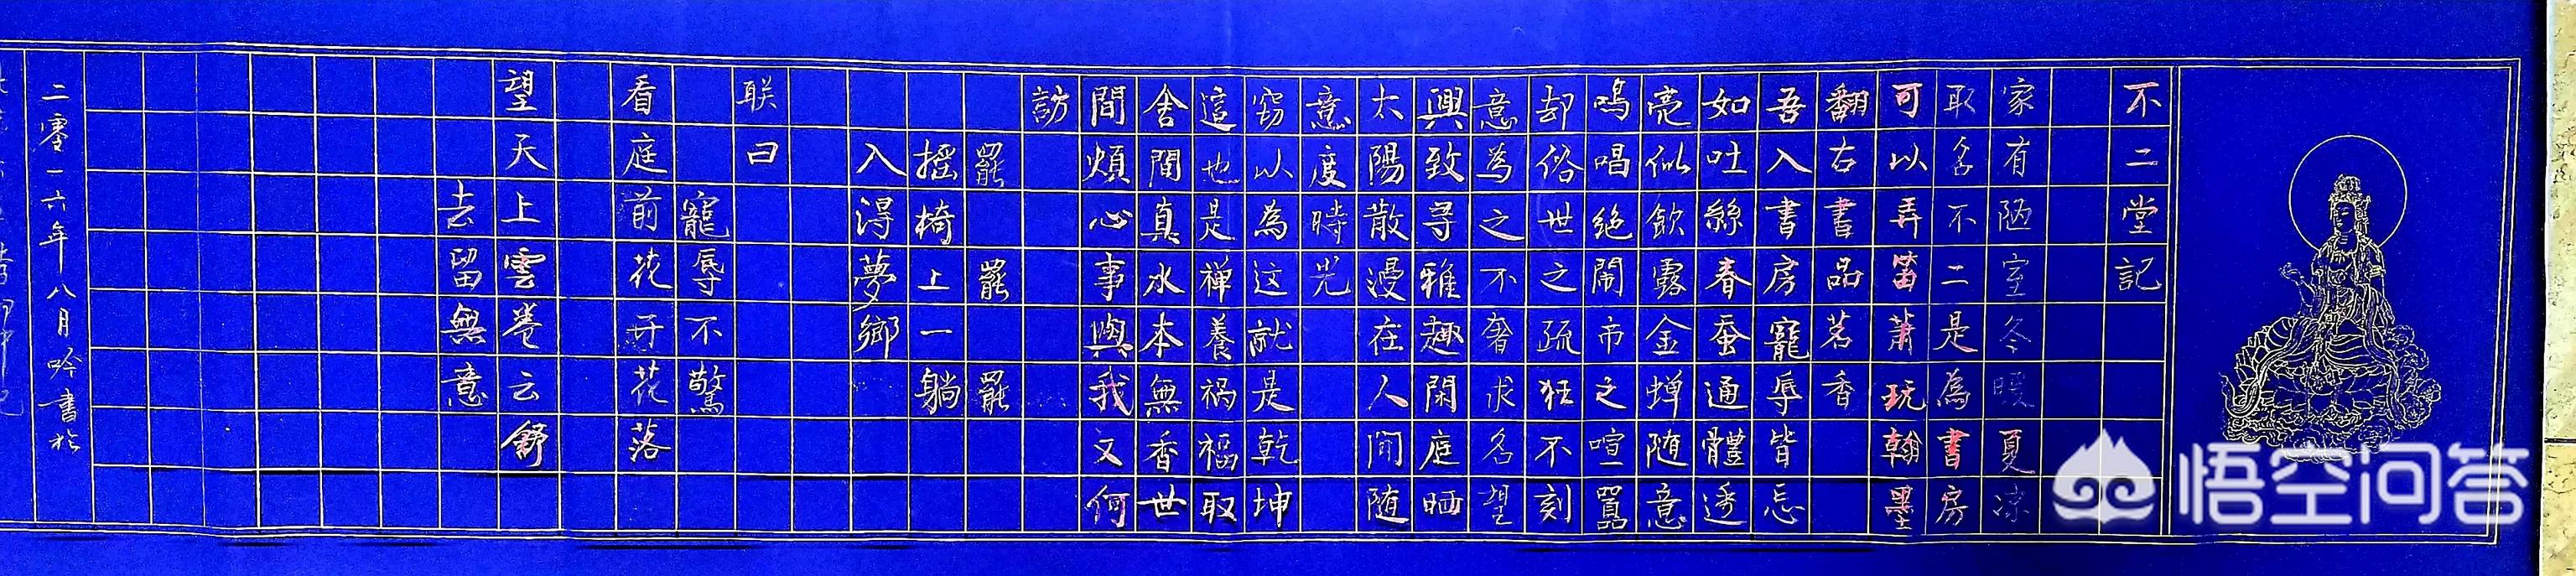 不二堂記
家有陋室冬暖夏凉
取名不二是為書房
可以弄笛萧玩翰墨
翻右書品茗香
吾入書房寵辱皆忘
如吐絲春蚕通體透
亮似飲露金蝉随意
鳴唱绝鬧市之喧嚣
却俗世之疏狂不刻
意為之不奢求名望
興致寻雅趣閑庭晒
太陽散漫在人間随
意度時光
窃以為这就是乾坤
這也是禅養祸福取
舍間真水本無香世
間煩心事與我文何
訪
罷罷罷
摇椅上一躺
入得夢鄉
联曰
寵辱不驚
看庭前花开花落
去留無意
望天上雲卷云舒
二零一六年八月吟書於
悟空问答